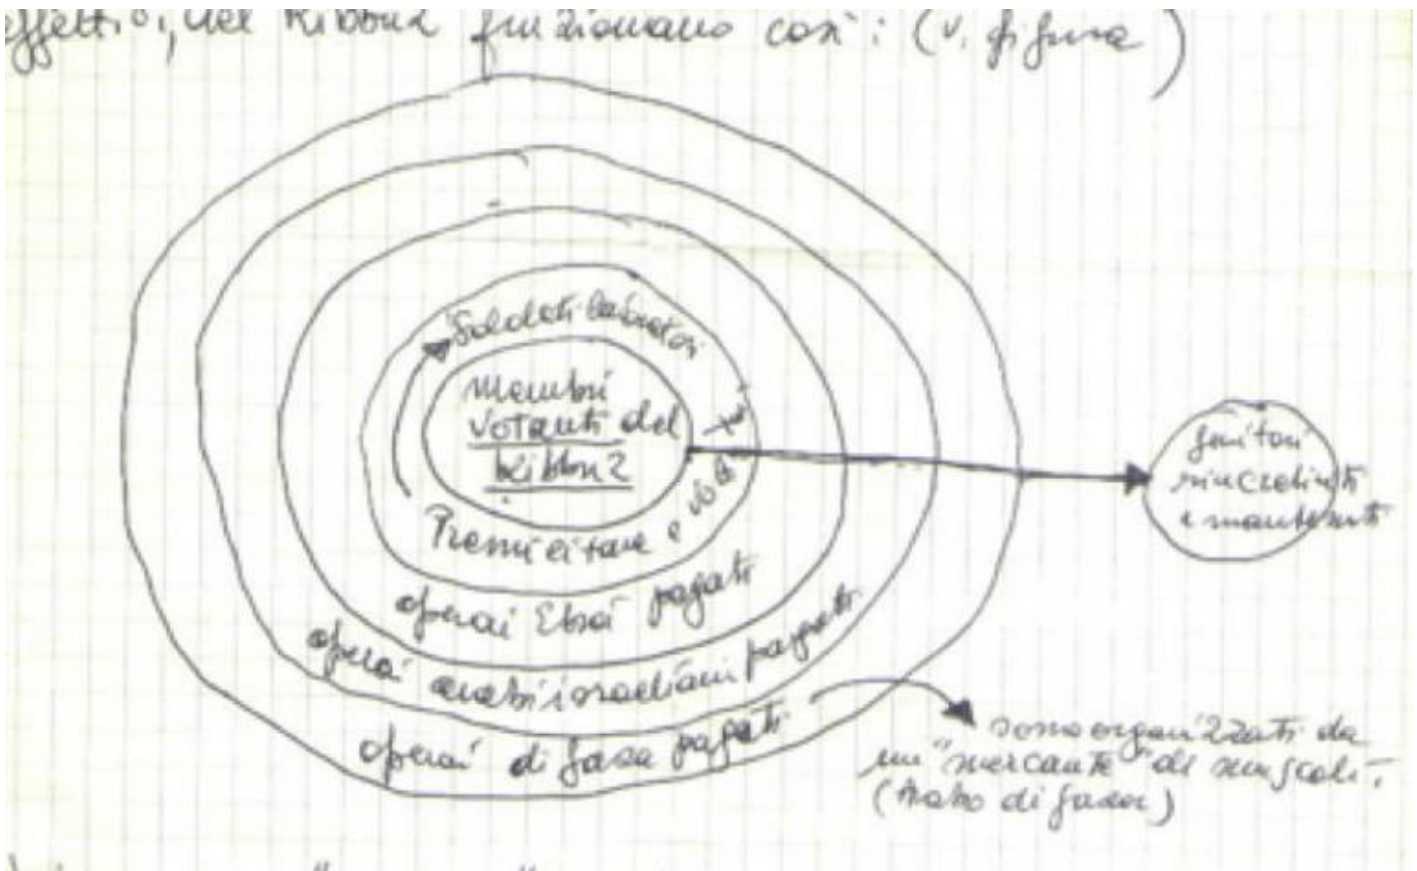 effettivi, nel Kibbuz funzionano così: (v. figura)
Soldati-lavoratori
Membri
Votanti del
Kibbuz
operai Ebrei pagati
operai arabi israeliani pagati
operai di Gaza pagati
genitori
rincretiniti
e mantenuti
sono organizzati da
un "mercante" di muscoli.
(Arabo di Gaza)